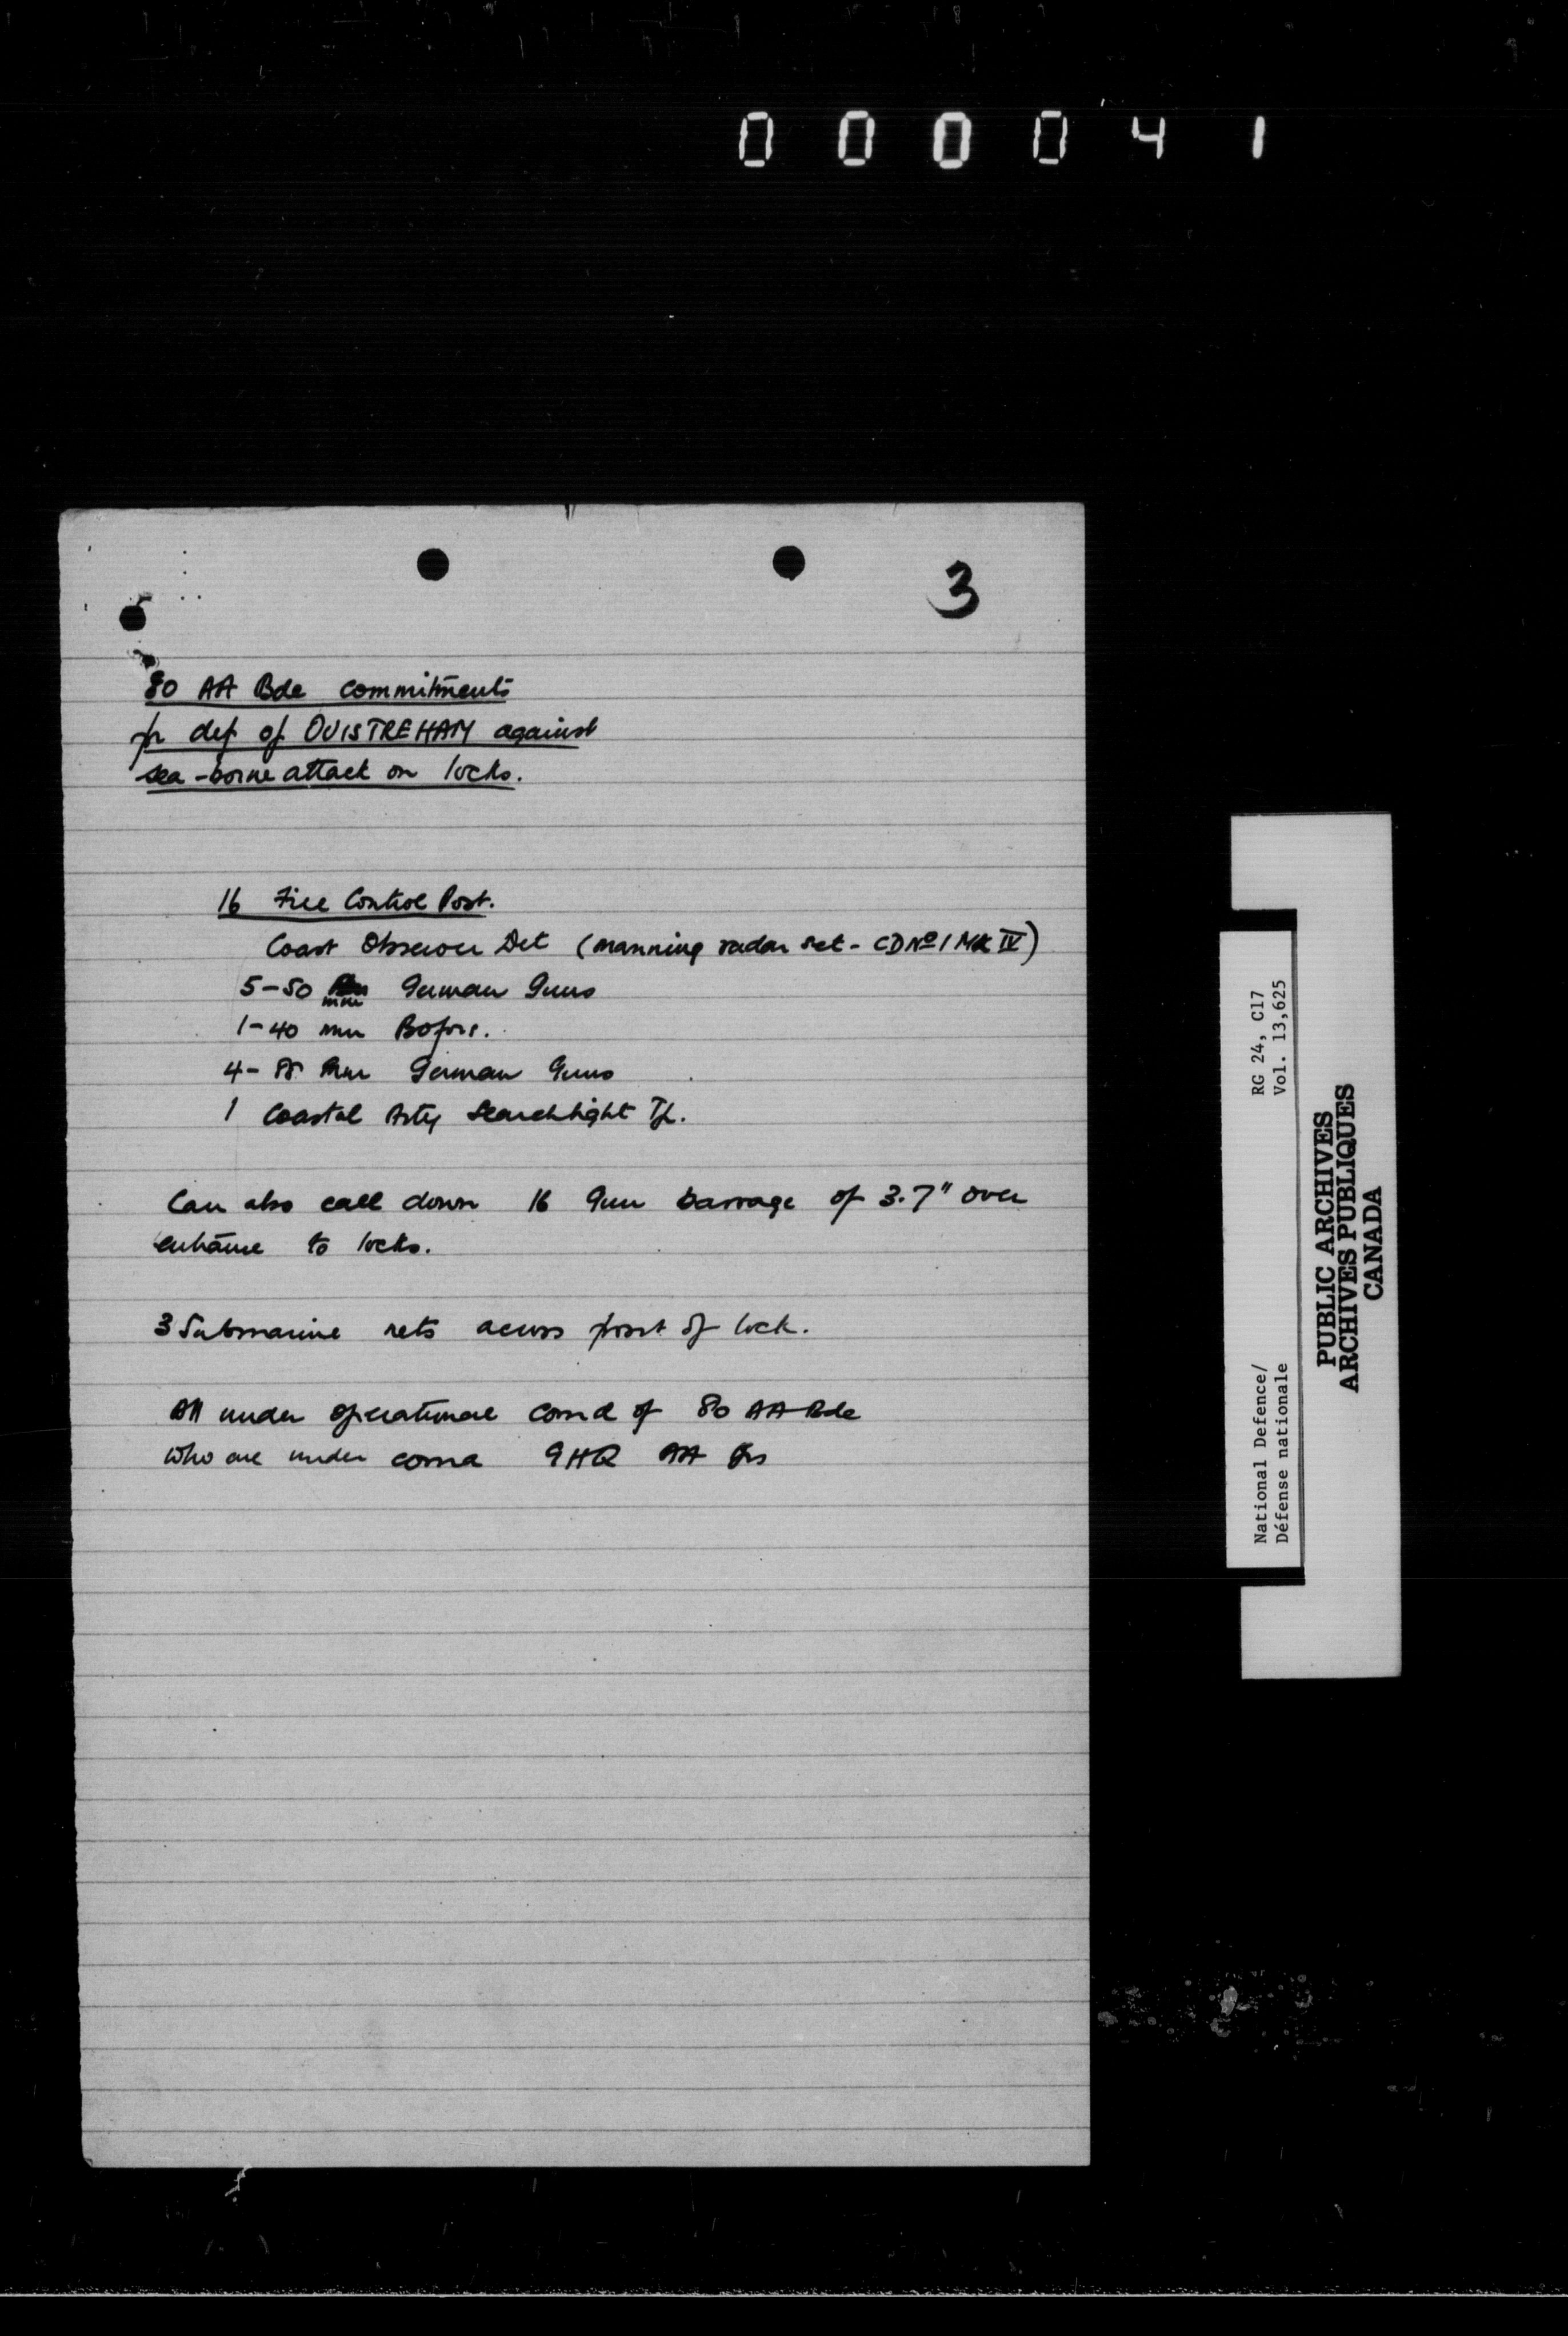 000041
3
80 AA Bde commitments
for def of OUISTREHAM against
sea-borne attack on locks.
16 Fire Control Post.
Coast Observer Det (manning radar set - CD No 1 Mk IV)
5-50 mm German Guns
1-40 mm Bofors.
4-88 mm German Guns
1 Coastal Arty Searchlight Tp.
Can also call down 16 gun barrage of 3.7" over
entrance to locks.
3 Submarine nets across front of lock.
All under operational comd of 80 AA Bde
who are under comd 9 HQ AA
National Defence/ RG 24, C17
Défense nationale Vol. 13,625
PUBLIC ARCHIVES
ARCHIVES PUBLIQUES
CANADA